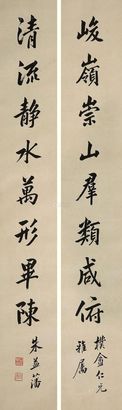 峻嶺崇山羣類咸俯
樸會仁兄
雅屬
清流静水萬形畢陳
朱益藩